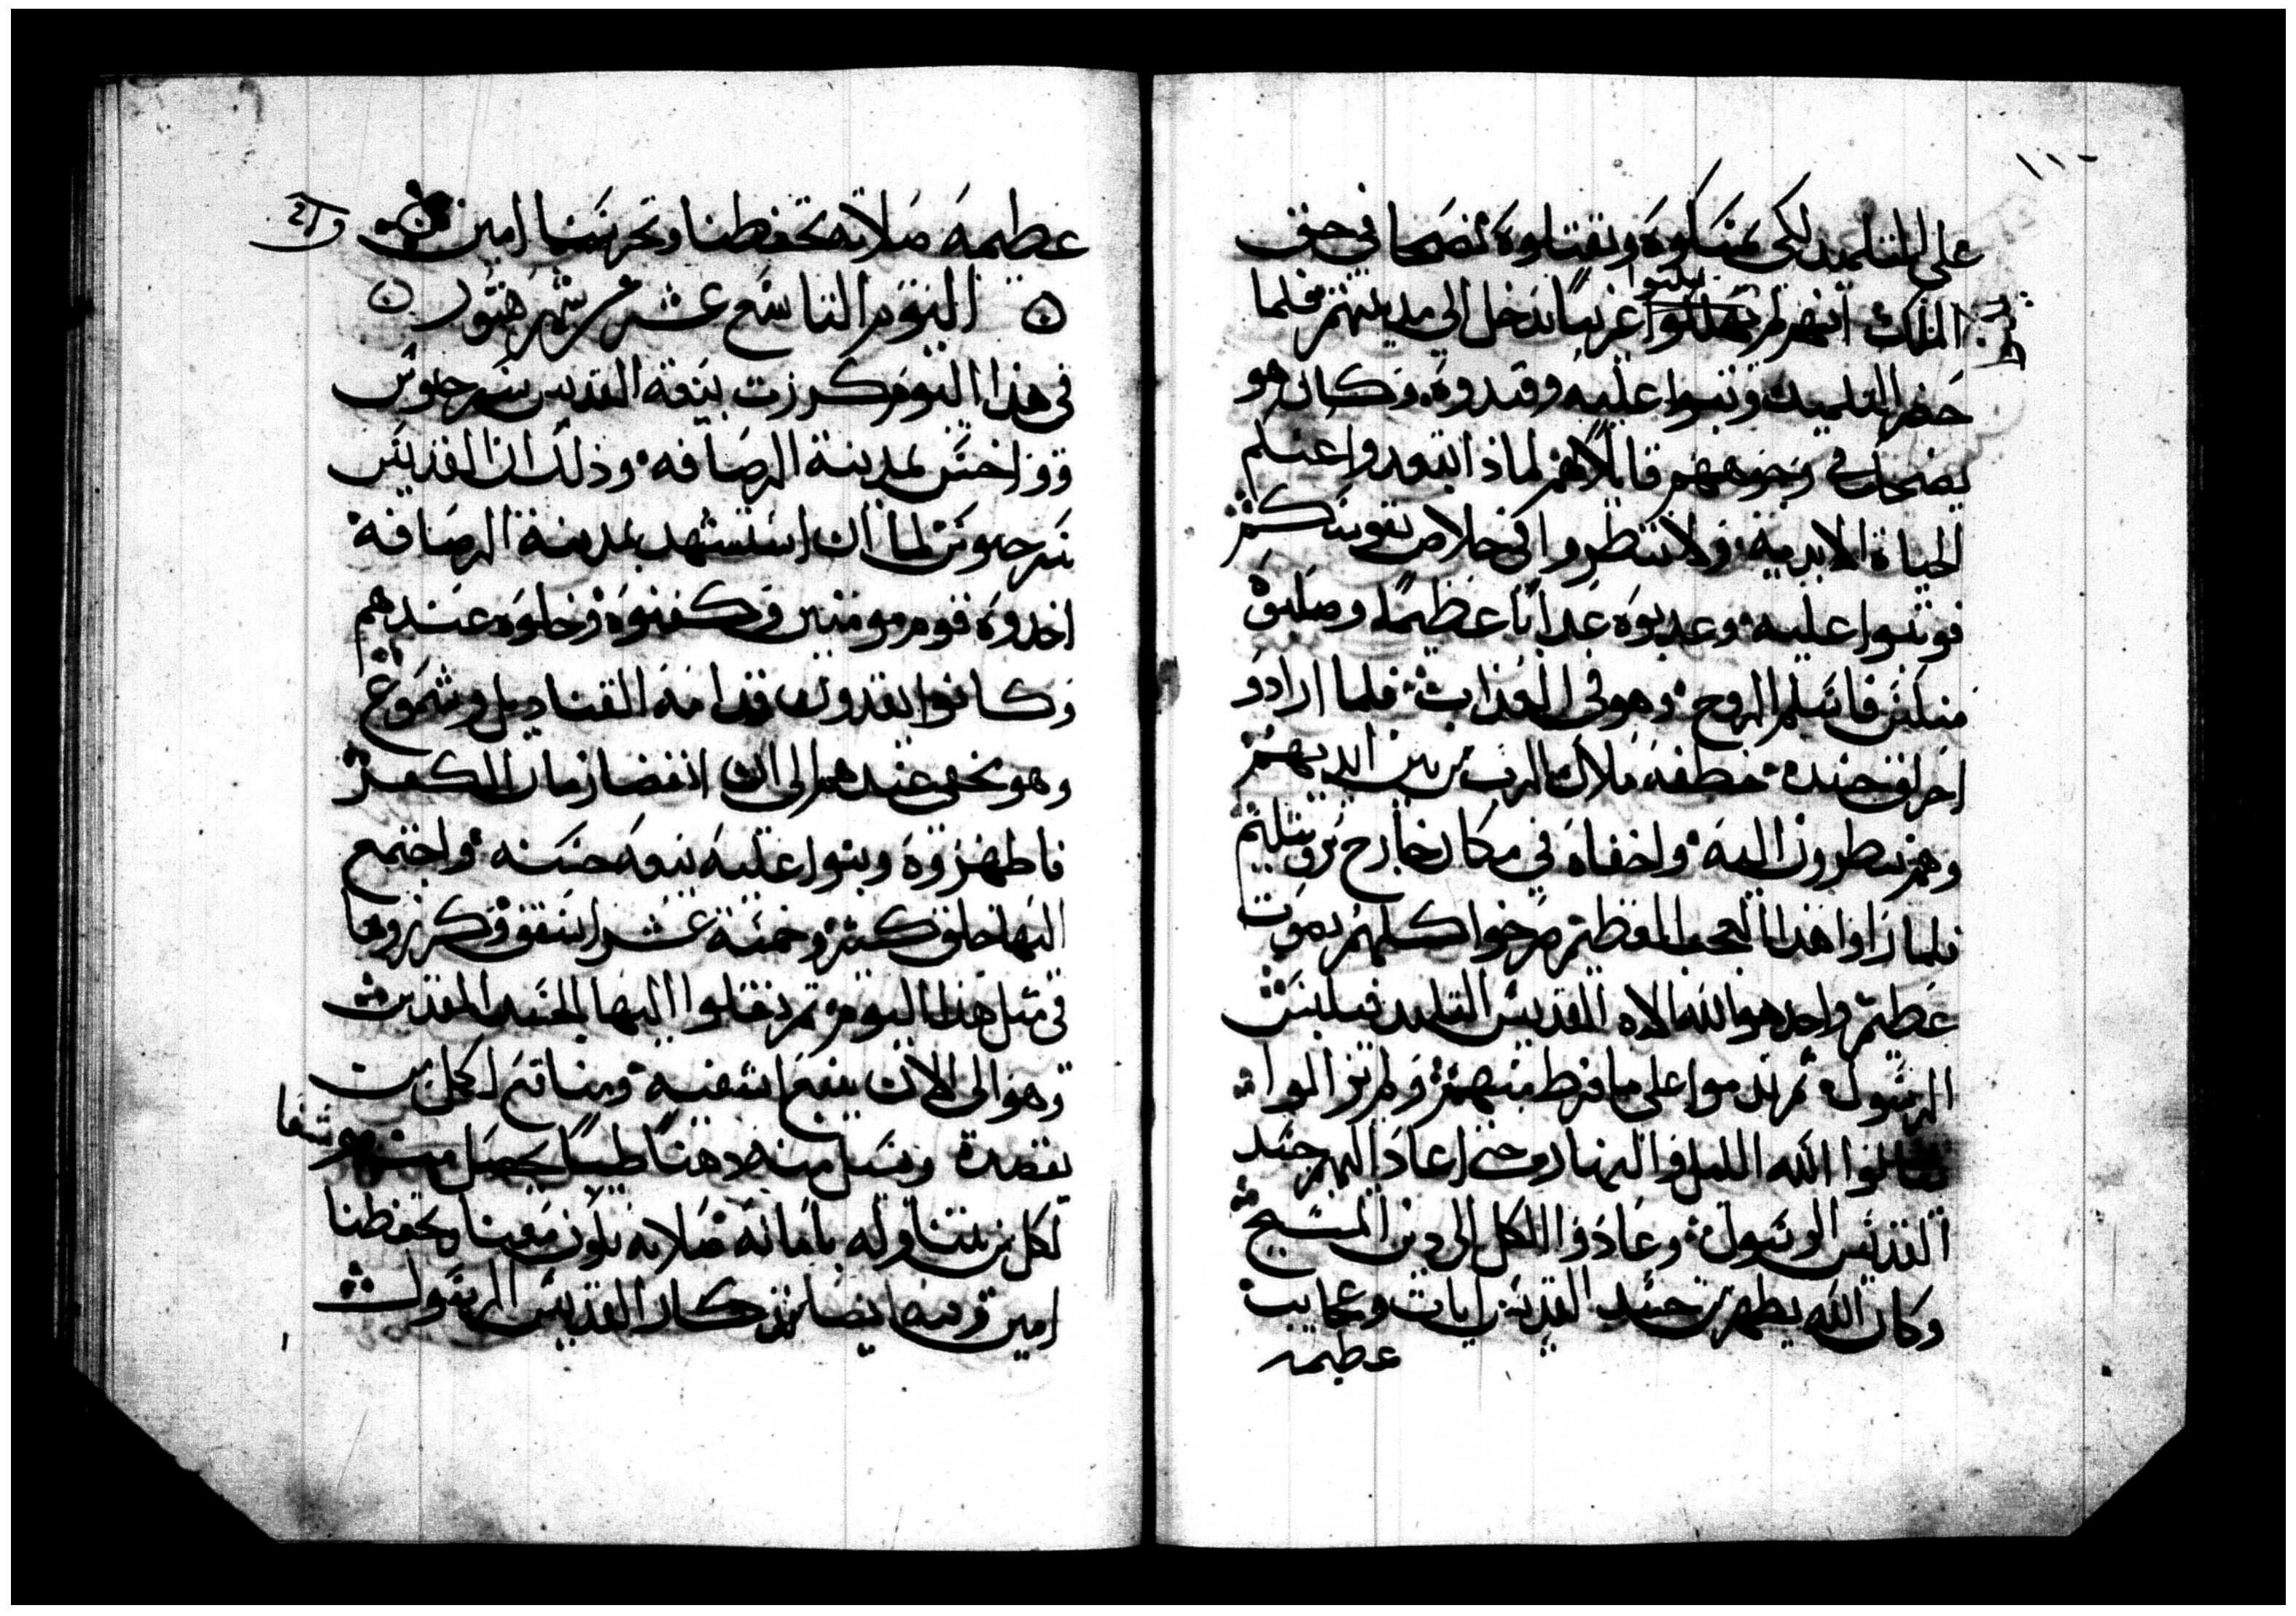 على التلميد لكى يمسكوه ويقتلوه نصحا في حق
الملك انهم لم يخلوا غريبًا يدخل الى مدينتهم فلما
يخلوا
حضر التلميد وثبوا عليه وقيدوه وكان هو
يضحك في وجوههم قايلًا لهم لماذا ابتعدوا عنكم
الحياة الابدية ولا تنظروا في خلاص نفوسكم
فوثبوا عليه وعدبوه عدابًا عظيمًا وصلبوه
منكس فاسلم الروح وهو في العذاب فلما ارادو
احراق جسده خطفه ملاك الرب من بين ايديهم
وهم ينظرون اليه واخفاه في مكان خارج
فلما راوا هذا العجب العظيم صرخوا كلهم بصوت
عظيم واحد هو الله الاه القديس التلميد فيلبس
الرسول ثم ندموا على ما فرط منهم ولم يزالوا
يسالوا الله الليل والنهار حتى اعاد اليهم جسد
القديس الرسول وعادوا الكل الى دين المسيح
وكان الله يظهر من جسد القديس ايات وعجايب
عظيمه
عظيمه صلاته تحفظنا وتحرسنا امين
اليوم التاسع عشر من شهر هتور
في هذا اليوم كرزت بيعة القديس سرجيوس
وواخس بمدينة الرصافه وذلك ان القديس
سرجيوس لما ان استشهد بمدينة الرصافة
اخدوه قوم مومنين وكفنوه وخلوه عندهم
وكانوا يقدون قدامه القناديل وشموع
وهو مخفى عندهم الى ان انقضا زمان الكفر
فاظهروه وبنوا عليه بيعه حسنه واجتمع
اليها خلق كثير وخمسة عشر اسقف وكرزوها
في مثل هذا اليوم ثم نقلوا اليها الجسد المقدس
وهو الى الان ينبع اشفيه ومنافع لكل من
يقصده ويسيل منه دهنًا طيبًا يحصل منه هو شفا
لكل من يتناوله بامانه صلاته تكون معنا وتحفظنا
امين وفيه ايضا تذكار القديس الرسول